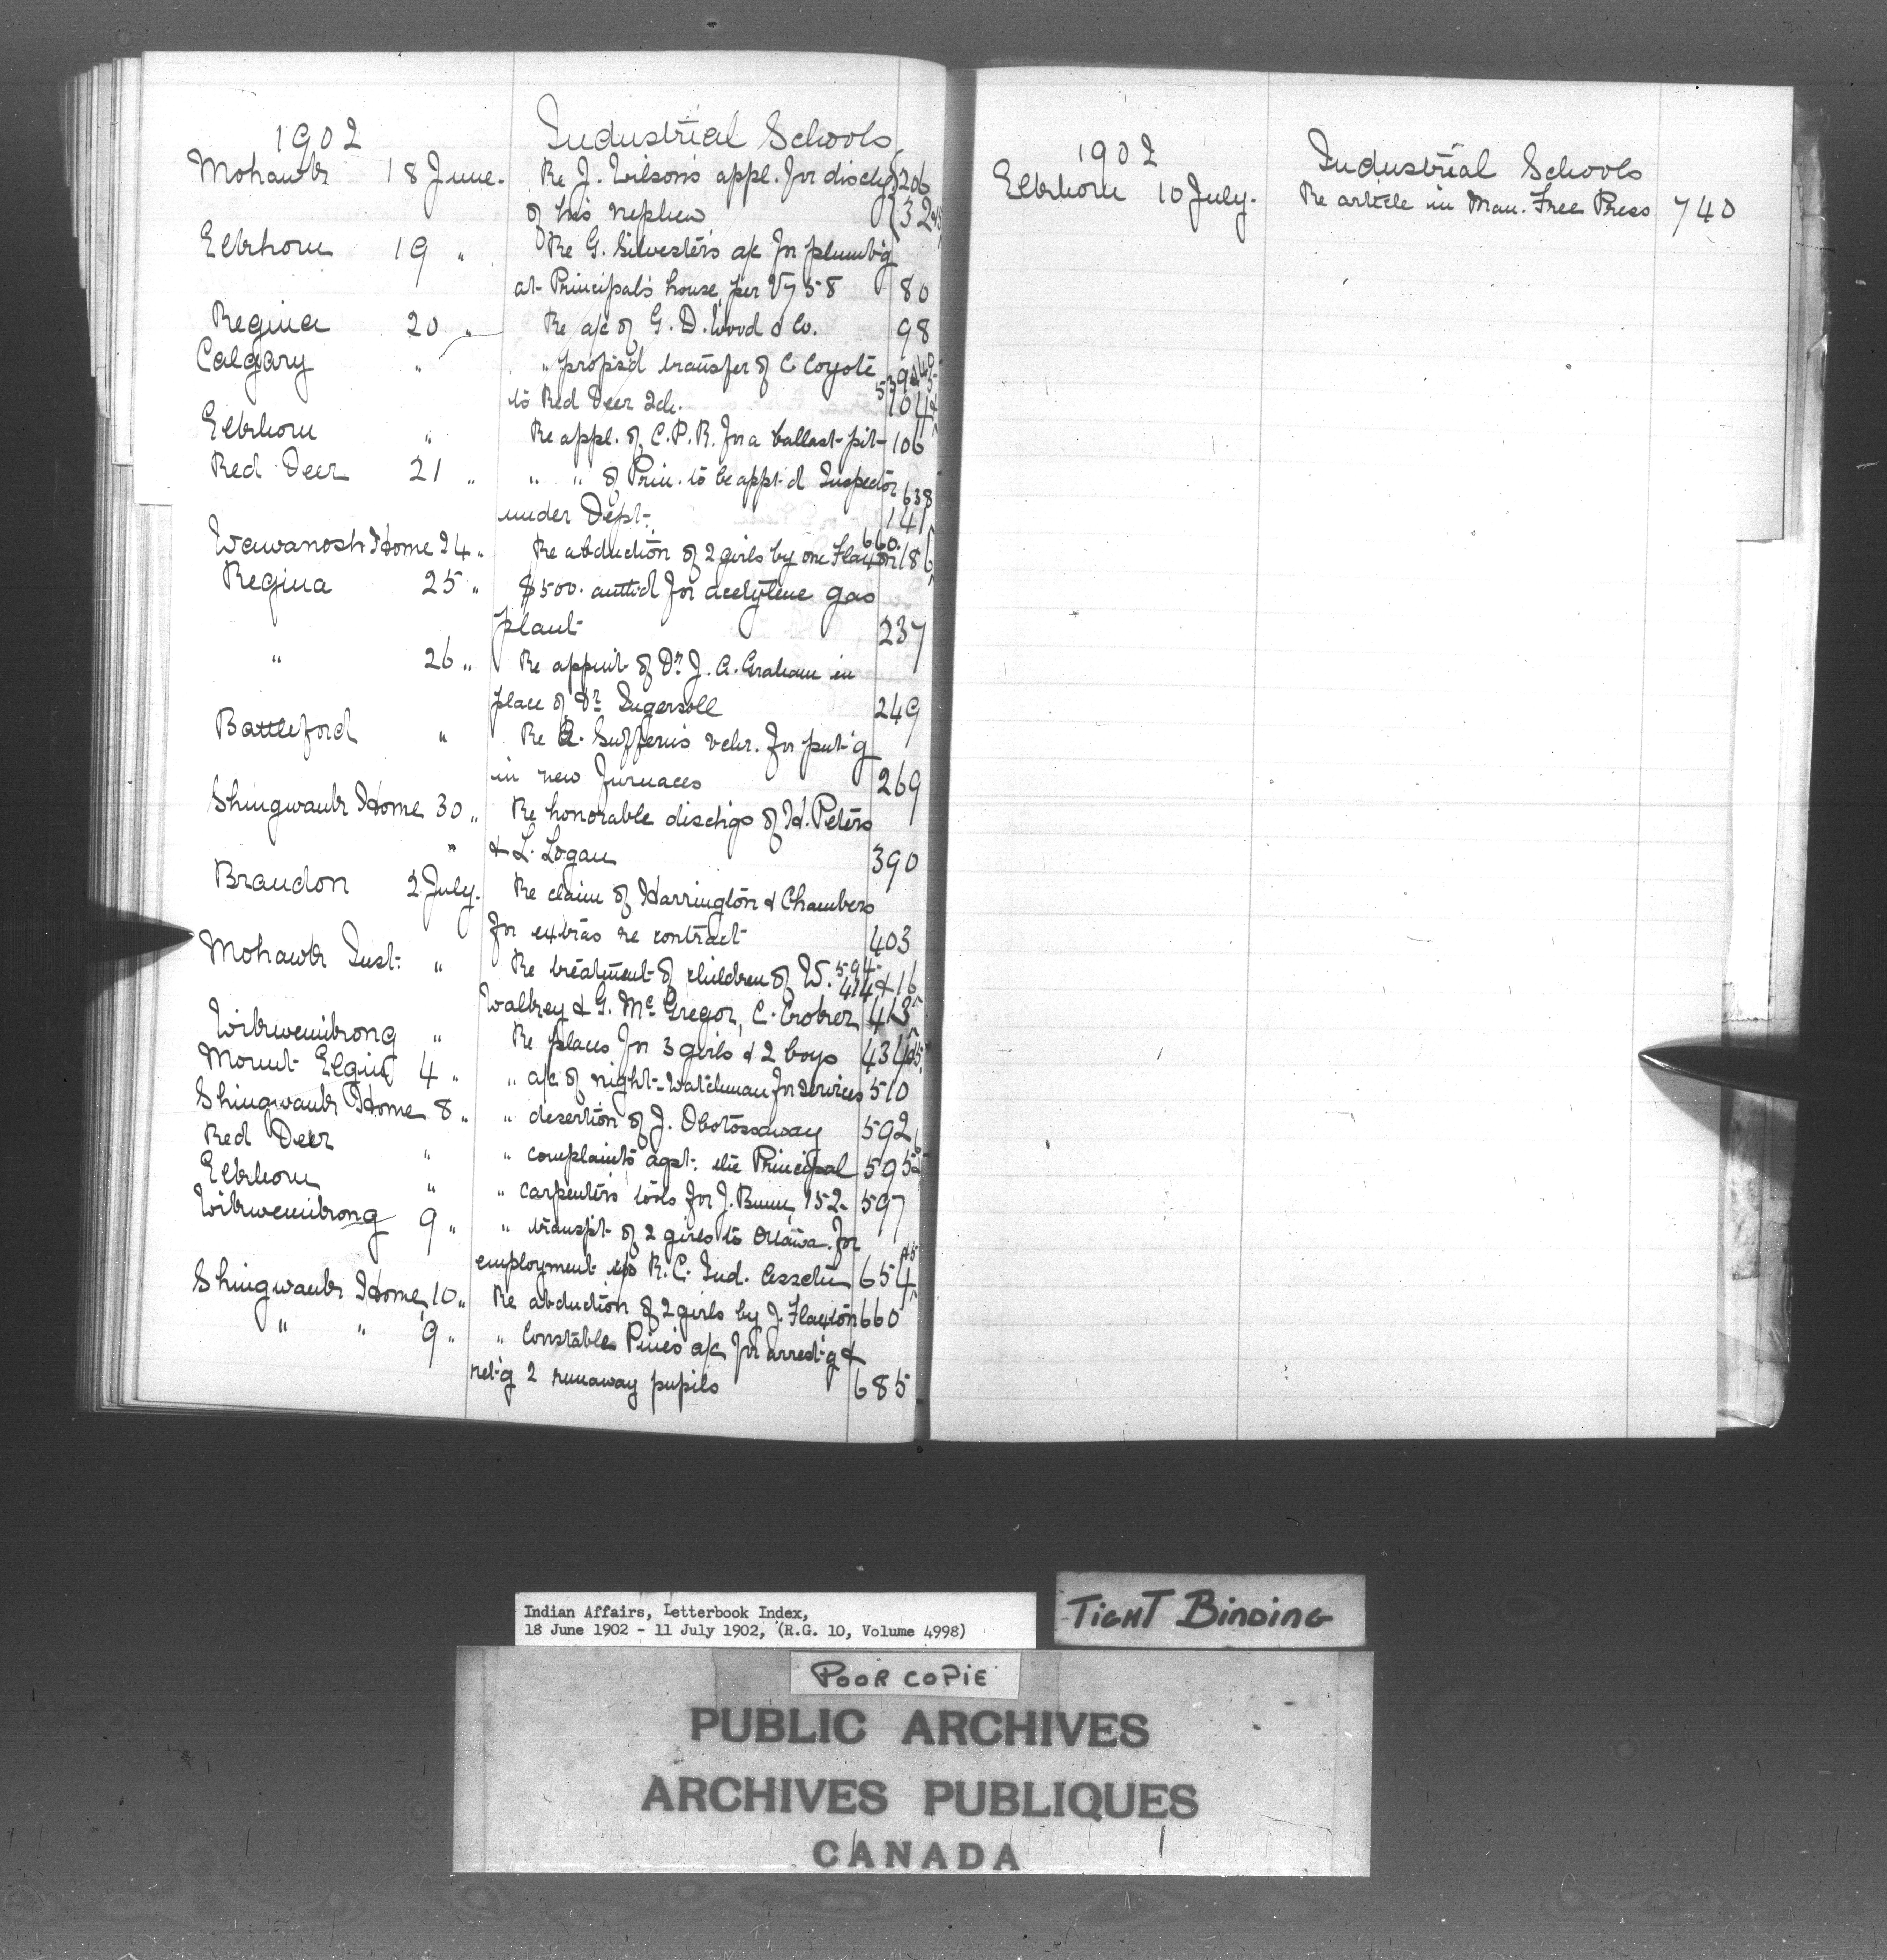 1902 Industrial Schools
Mohawk 18 June. Re J. Wilson's appl. for dischg 206
of his nephew 32
Elkhorn 19 " Re G. Silvester's a/c for plumb'g
at Principal's house, per Vr 58 80
Regina 20 " Re a/c of G. D. Wood & Co. 98
Calgary " " propos'd transfer of C Coyote
to Red Deer Sch. 104
Elkhorn " Re appl. of C.P.R. for a ballast-pit 106
Red Deer 21 " " " of Prin. to be appt'd Inspector 638
under Dept. 141
Wawanosh Home 24 " Re abduction of 2 girls by one Flaxton 660 186
Regina 25 " $500. auth'd for acetylene gas
plant 237
" 26 " Re appnt. of Dr J. A. Graham in
place of Dr Ingersoll 249
Battleford " Re A. Suffern's vchr. for put'g
in new furnaces 269
Shingwauk Home 30 " Re honorable dischgs of H. Peters
" & L. Logan 390
Brandon 2 July. Re claim of Harrington & Chambers
for extras re contract 403
Mohawk Inst. " Re treatment of children of W. 594 414 & 16
& G. McGregor, C. 413
Wikwemikong " Re places for 3 girls & 2 boys 434
Mount Elgin 4 " " a/c of night-watchman for services 510
Shingwauk Home 8 " " desertion of J. Obotossaway 592
Red Deer " " complaints agst. the Principal 595
Elkhorn " " carpenter's tools for J. Bunn, 152 597
Wikwemikong 9 " " transp't of 2 girls to Ottawa for
employment R.C. Ind. 654
Shingwauk Home 10 " Re abduction of 2 girls by J. Flaxton 660
" " 9 " " Constable Pine's a/c for arrest'g &
ret'g 2 runaway pupils 685
1902 Industrial Schools
Elkhorn 10 July. Re article in Man. Free Press 740
Indian Affairs, Letterbook Index,
18 June 1902 - 11 July 1902, (R.G. 10, Volume 4998)
TIGHT BINDING
POOR COPIE
PUBLIC ARCHIVES
ARCHIVES PUBLIQUES
CANADA